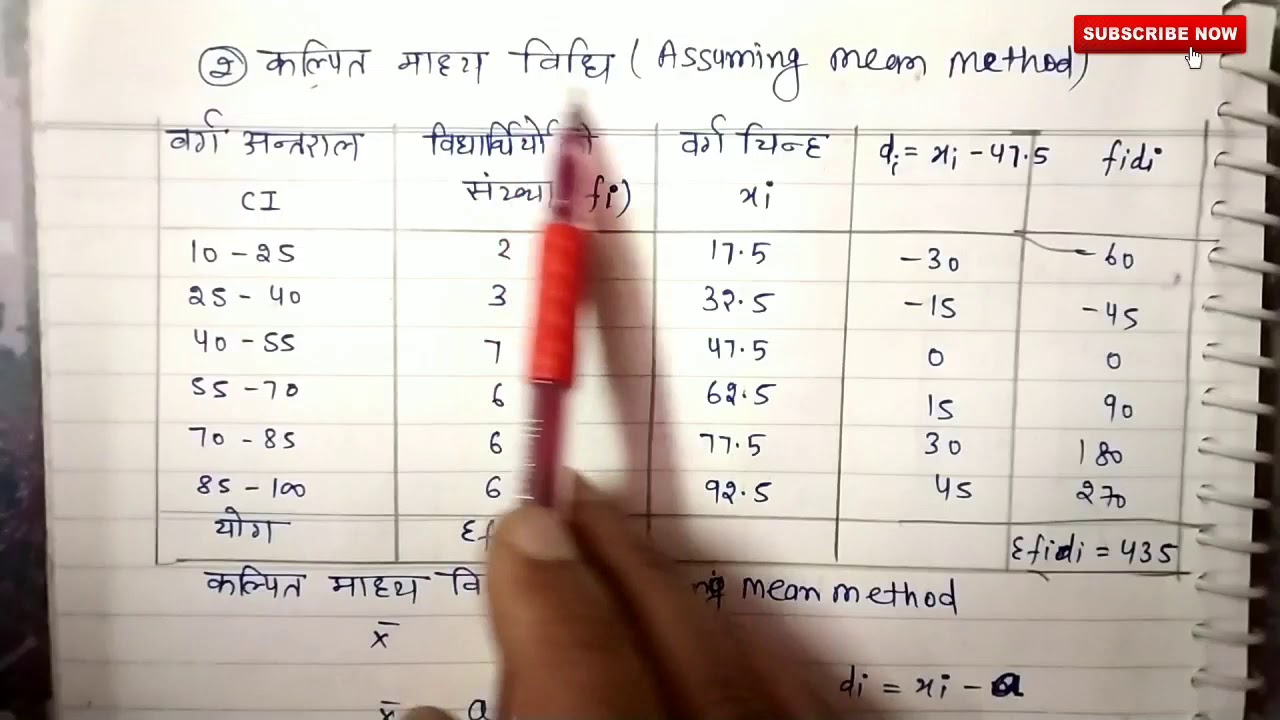 SUBSCRIBE NOW
२ कल्पित माध्य विधि ( Assuming mean method)
वर्ग अन्तराल विद्यार्थियों वर्ग चिन्ह di = xi - 47.5 fidi
CI संख्या fi) xi
10 - 25 2 17.5 -30 -60
25 - 40 3 32.5 -15 -45
40 - 55 7 47.5 0 0
55 - 70 6 62.5 15 90
70 - 85 6 77.5 30 180
85 - 100 6 92.5 45 270
योग Σf Σfidi = 435
कल्पित माध्य वि mean method
x̄
di = xi - a
x̄ a